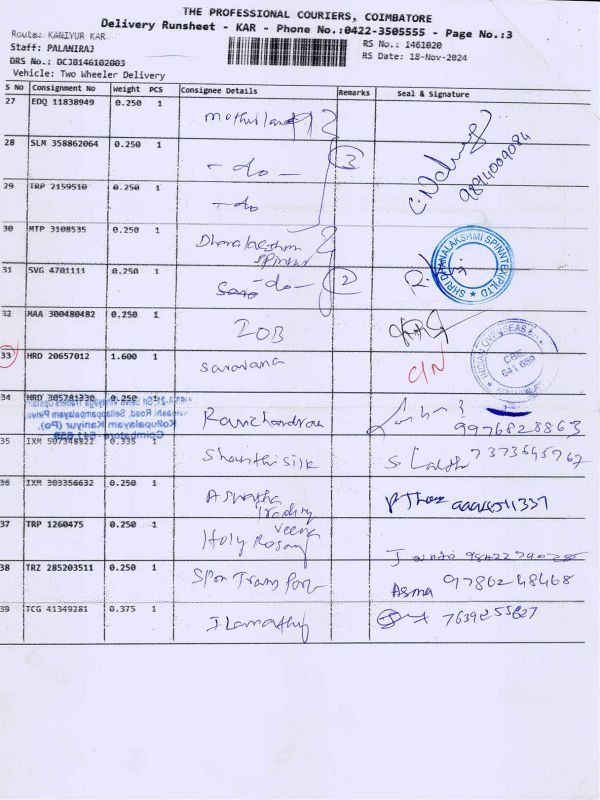 THE PROFESSIONAL COURIERS, COIMBATORE
Delivery Runsheet - KAR - Phone No.:0422-3505555 - Page No.:3
Route: KANIYUR KAR
Staff: PALANIRAJ
DRS No.: DCJ8146102003
Vehicle: Two Wheeler Delivery
RS No.: 1461020
RS Date: 18-Nov-2024
S No Consignment No Weight PCS Consignee Details Remarks Seal & Signature
27 EDQ 11838949 0.250 1
28 SLM 358862064 0.250 1 - do - 3 9894009084
29 TRP 2159510 0.250 1 - do
30 MTP 3108535 0.250 1 Dhanalakshmi
31 SVG 4701111 0.250 1 - do - 2
SHRI DHANALAKSHMI SPINNTEX (P) LTD
32 MAA 300480482 0.250 1 IOB
INDIAN OVERSEAS
641 659
33 HRD 20657012 1.600 1 saravana C/N
34 HRD 305781330 0.250 1 Ravichandran 9976828863
Kollupalayam Kaniyur (Po),
Coimbatore - 641 659
35 IXM 507348822 0.335 1 Shanthi silk 7373645767
36 IXM 303356632 0.250 1 Trading
37 TRP 1260475 0.250 1 Holy Rosary
38 TRZ 285203511 0.250 1 Asma 9786248468
39 TCG 41349281 0.375 1 7639255827